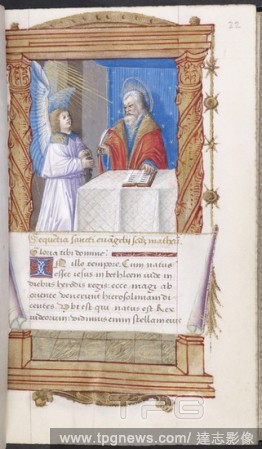 22
Sequētia sancti euāgelij scḋȝ mathe
Gloria tibi domine.
IN illo tempore, Cum natus
esset iesus in bethleem iude in
diebus herodis regis: ecce magi ab
oriente venerunt hierosolimam di-
centes. Vbi est qui natus est Rex
iudeorum: vidimus enim stellam eius
TPG
www.tpgnews.com / 達志影像